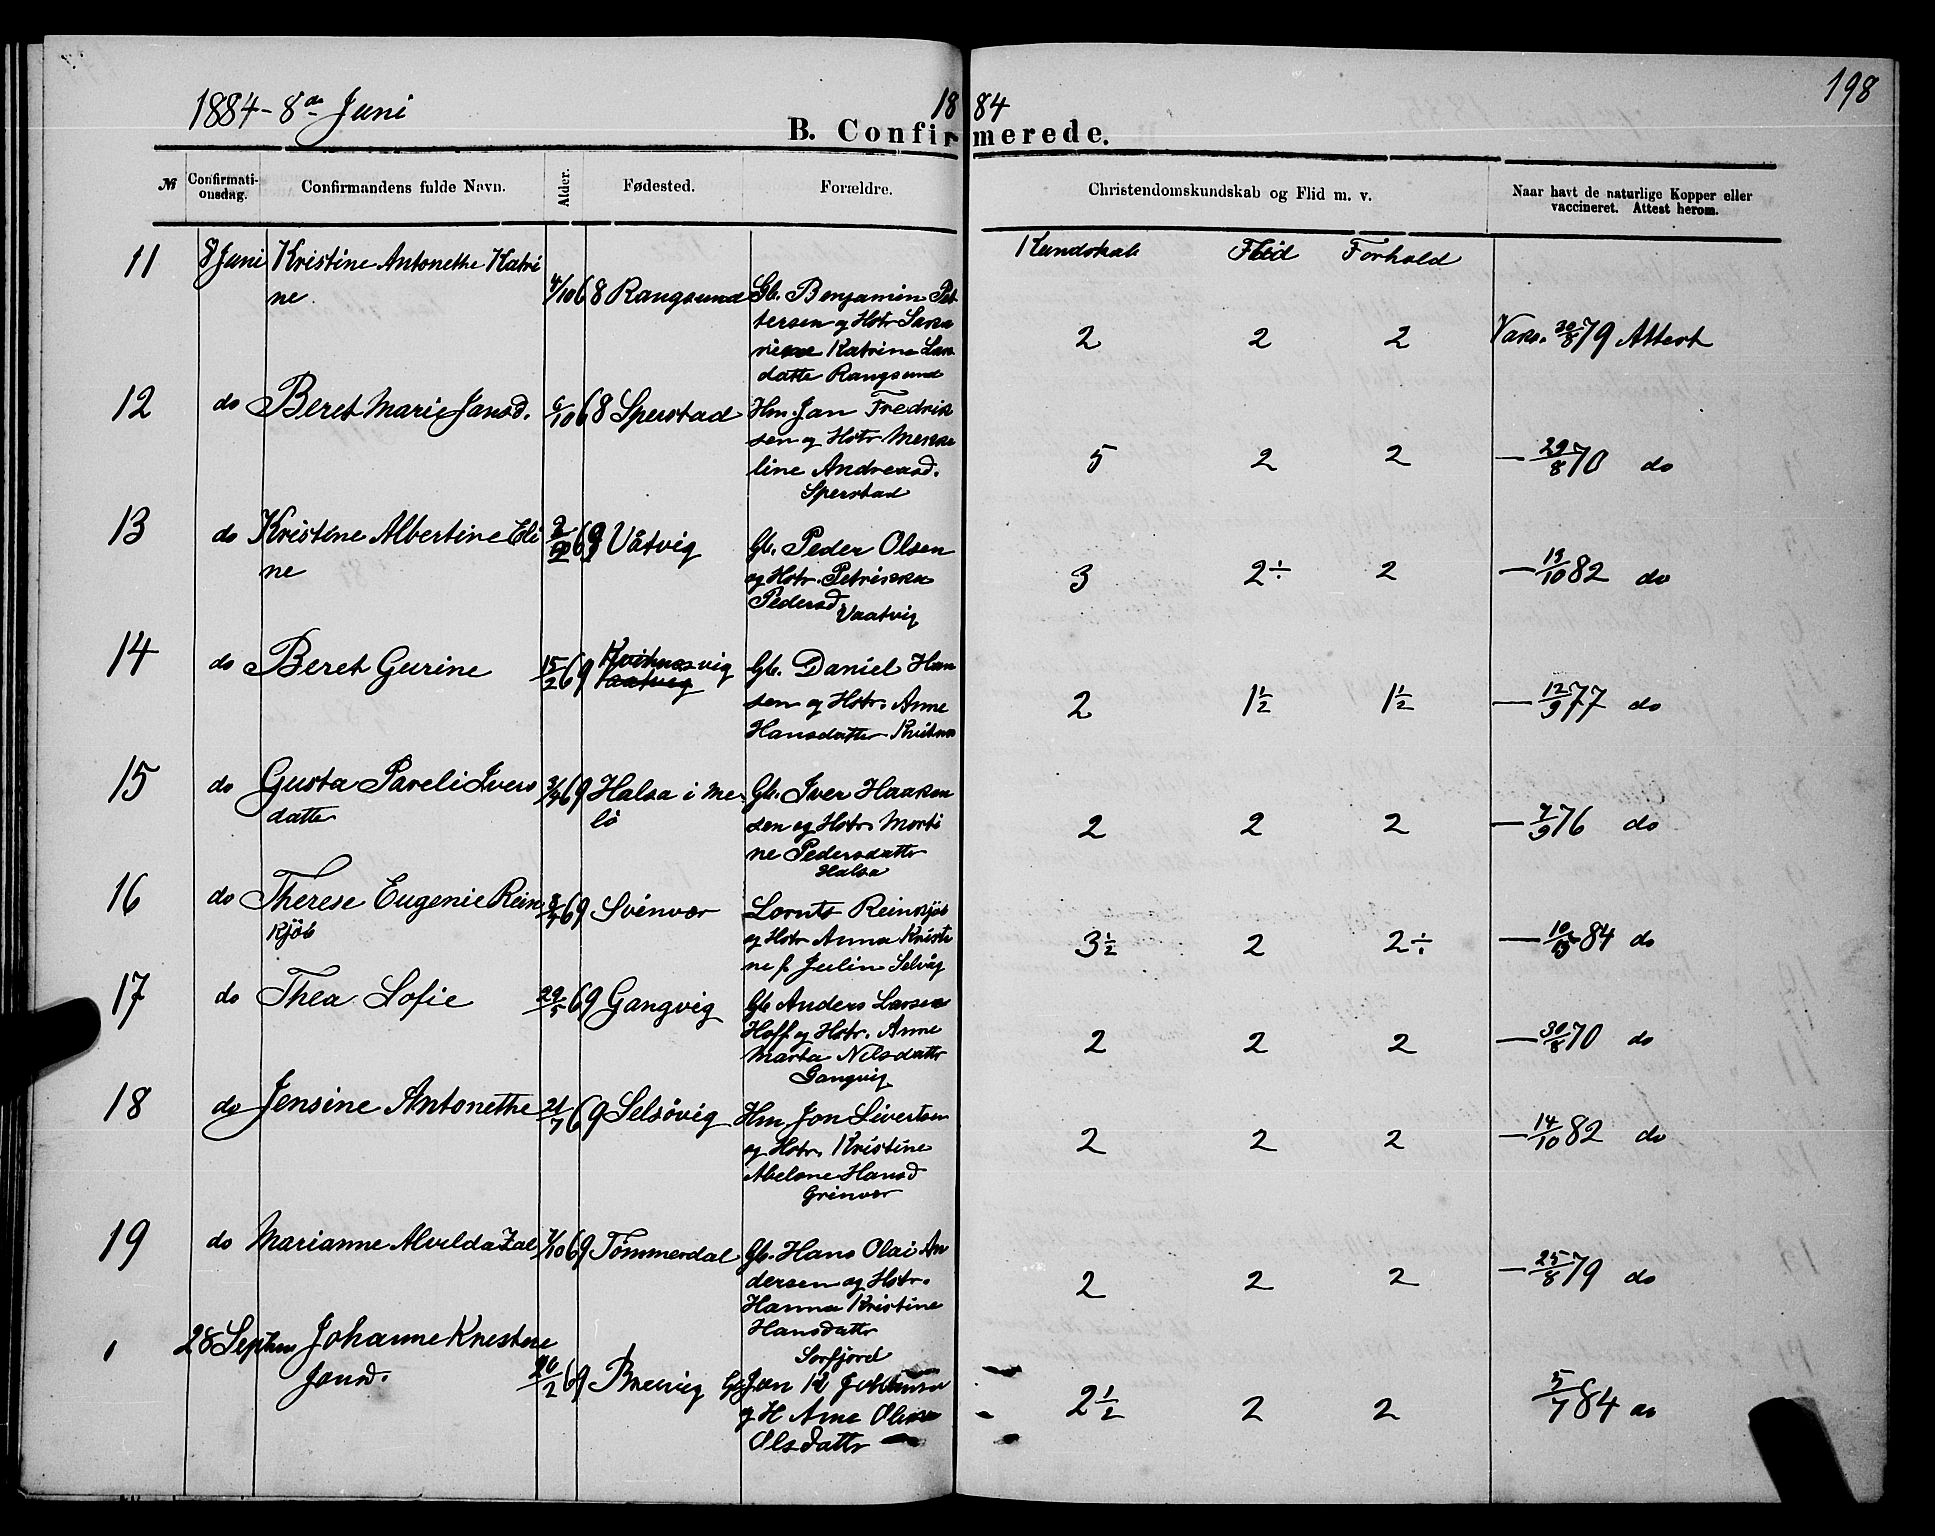 198
1884 - 8de Juni 1884
B. Confirmerede.
№ Confirmationsdag. Confirmandens fulde Navn. Alder. Fødested. Forældre. Christendomskundskab og Flid m. v. Naar havt de naturlige Kopper eller vaccineret. Attest herom.
Kundskab Flid Forhold
11 8 Juni Kristine Antonethe Katri 4/10 68 Rangsund Gb. Benjamin Pet
ne tersen og Hstr
Katrine Lars
datte Rangsund
2 2 2 Vaks. 30/8 79 Attest
12 do Beret Marie Jansd. 6/10 68 Sperstad Hm. Jan Fredrik
sen og Hstr
line Andreasd.
Sperstad
5 2 2 — 29/8 70 do
13 do Kristine Albertine Eli 69 Våtvig Gb. Peder Olsen
ne og Hstr. Petrikka
Pedersd Vaatvig
3 2÷ 2 — 13/10 82 do
14 do Beret Gurine 15/2 69 Kvitnesvig Gb. Daniel Han
sen og Hstr. Anne
Hansdatter Kvitnes
2 1½ 1½ — 12/9 77 do
15 do Gusta Pareli Ivers 3/4 69 Halsa i Me Gb. Iver Haaken
datte lö sen og Hstr. Marti
ne Pedersdattr
Halsa
2 2 2 — 7/9 76 do
16 do Therese Eugenie Rein 69 Svinvær Lornts Reinskjöb
kjöb og Hstr Anna Kristi
ne f. Julin Selvåg
3½ 2 2÷ — 84 do
17 do Thea Sofie 29/5 69 Gangvig Gb Anders Larsen
Hoff og Hstr. Anne
Marta Nilsdattr
Gangvig
2 2 2 — 30/8 70 do
18 do Jensine Antonethe 21/7 69 Selsövig Hm Jon Sivertsen
og Hstr. Kristine
Abelone Hansd
Grönvær
2 2 2 — 14/10 82 do
19 do Marianne Alvilda Zal 1/10 69 Tömmerdal Gb. Hans Olai An
dersen og Hstr.
Hanna Kristine
Hansdattr
Sörfjord
2 2 2 — 25/8 79 do
1 28 Septbr Johanne Kristine
Jansd. 26/2 69 Breivig Gb Jan
og H Ane
Olsdattr
2½ 2 2 5/7 84 do